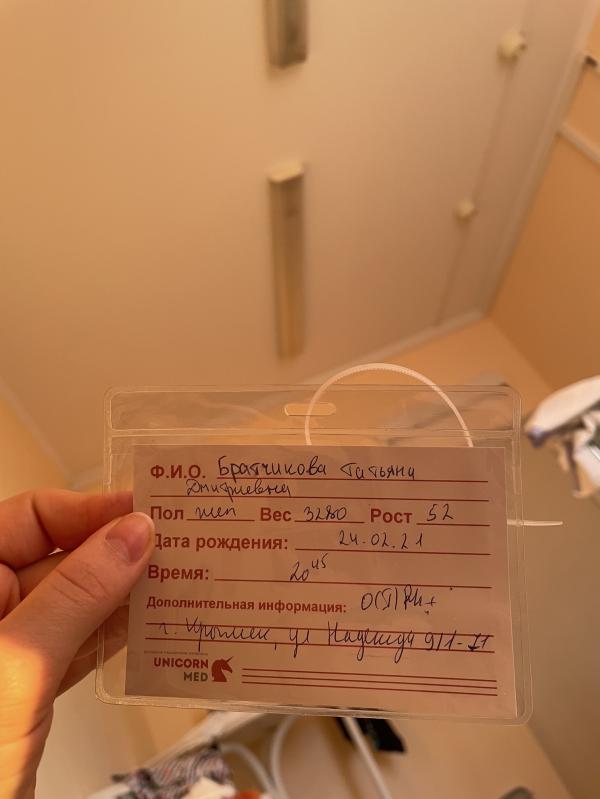 Ф.И.О. Братчикова Татьяна
Дмитриевна
Пол жен Вес 3280 Рост 52
Дата рождения: 24.02.21
Время: 20 45
Дополнительная информация: O(I) Rh+
г. ул Надежды 9/1-
UNICORN
MED